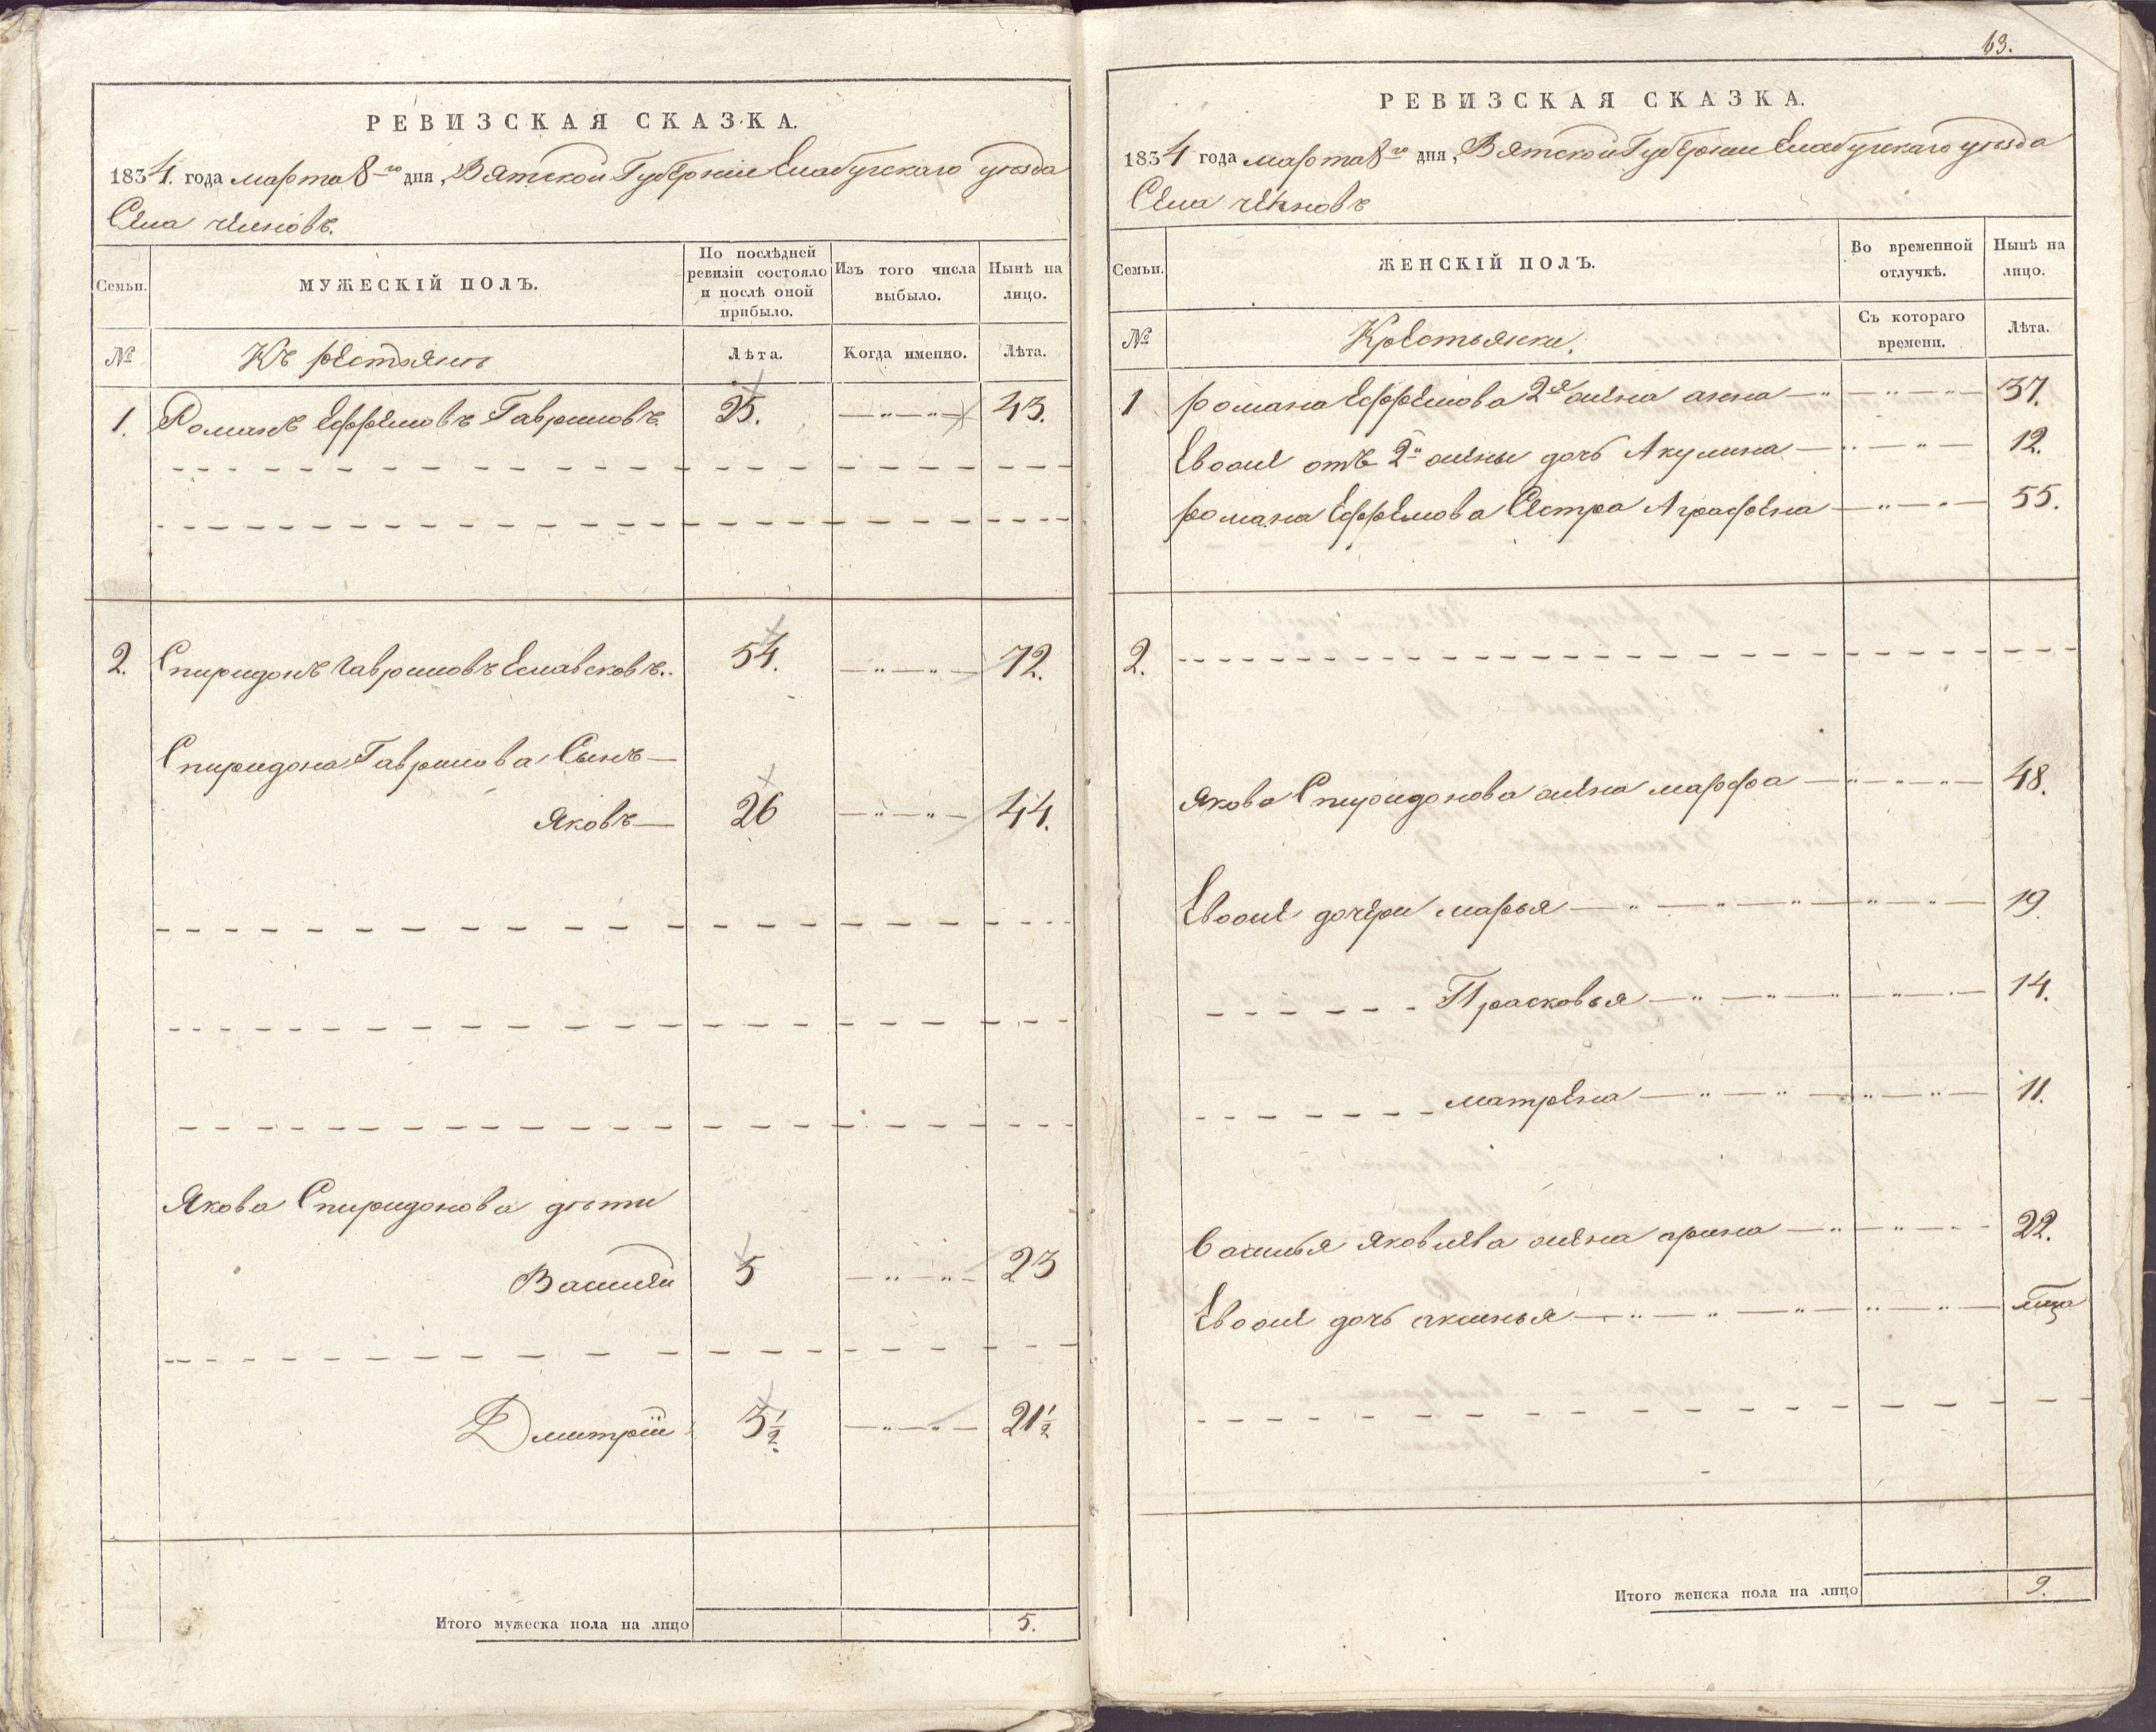 РЕВИЗСКАЯ СКАЗКА.
1834. года марта 8го дня, Вятской Губернии Елабугскаго уѣзда
Села
Семьи.
МУЖЕСКІЙ ПОЛЪ.
По послѣдней ревизіи состояло и послѣ оной прибыло.
Изъ того числа выбыло.
Нынѣ на лицо.
№
Къ рестьянъ
Лѣта.
Когда именно.
Лѣта.
1. Романъ Ефремовъ Гавриловъ. 25. —"—"— 43.
2. Спиридонъ Гавриловъ 54. —"—"— 72.
Спиридона Гаврилова Сынъ—
Яковъ— 26 —"—"— 44.
Якова Спиридонова дѣти
Василій 5 —"—"— 23
Дмитрій 3½ —"—"— 21½
Итого мужеска пола на лицо 5.
63.
РЕВИЗСКАЯ СКАЗКА.
1834 года марта 8го дня, Вятской Губернии Елабугскаго уѣзда
Села
Семьи.
ЖЕНСКІЙ ПОЛЪ.
Во временной отлучкѣ.
Нынѣ на лицо.
№
Крестьянки.
Съ котораго времени.
Лѣта.
1 романа Ефремова 2я жена анна —"—"—"— 37.
Евоже отъ 2й жены дочь Акулина —"—"— 12.
романа Ефремова Сестра Аграфена —"—"— 55.
2.
Якова Спиридонова жена марфа —"—"—"— 48.
Евоже дочери марья —"—"—"—"—"— 19.
Прасковья —"—"—"—"— 14.
матрена —"—"—"—"— 11.
Василья Яковлева жена арина —"—"— 22.
Евоже дочь аксинья —"—"—"—"—"—
Итого женска пола на лицо 9.